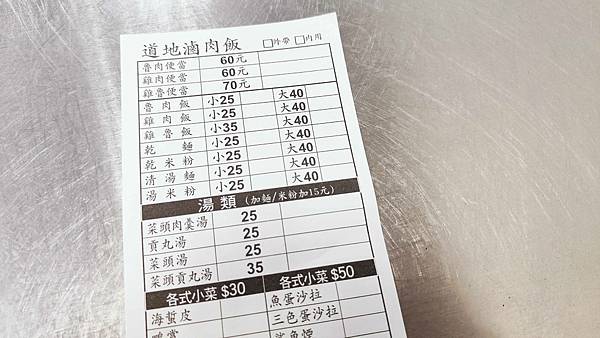 道地滷肉飯 □外帶 □內用
魯肉便當 60元
雞肉便當 60元
雞魯便當 70元
魯肉飯 小25 大40
雞肉飯 小25 大40
雞魯飯 小35 大40
乾麵 小25 大40
乾米粉 小25 大40
清湯麵 小25 大40
湯米粉 小25 大40
湯類 (加麵/米粉加15元)
菜頭肉羹湯 25
貢丸湯 25
菜頭湯 25
菜頭貢丸湯 35
各式小菜 $30 各式小菜 $50
海蜇皮 魚蛋沙拉
鴨賞 三色蛋沙拉
鯊魚煙